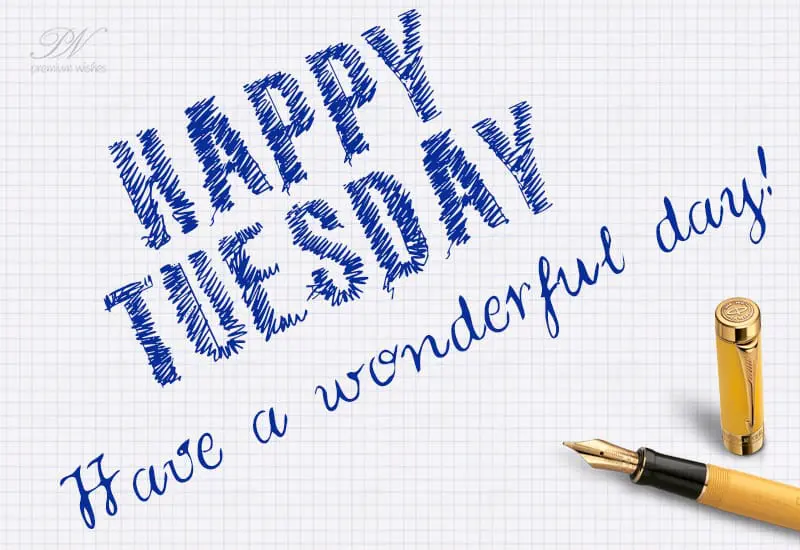 PW
premium wishes
HAPPY
TUESDAY
Have a wonderful day!